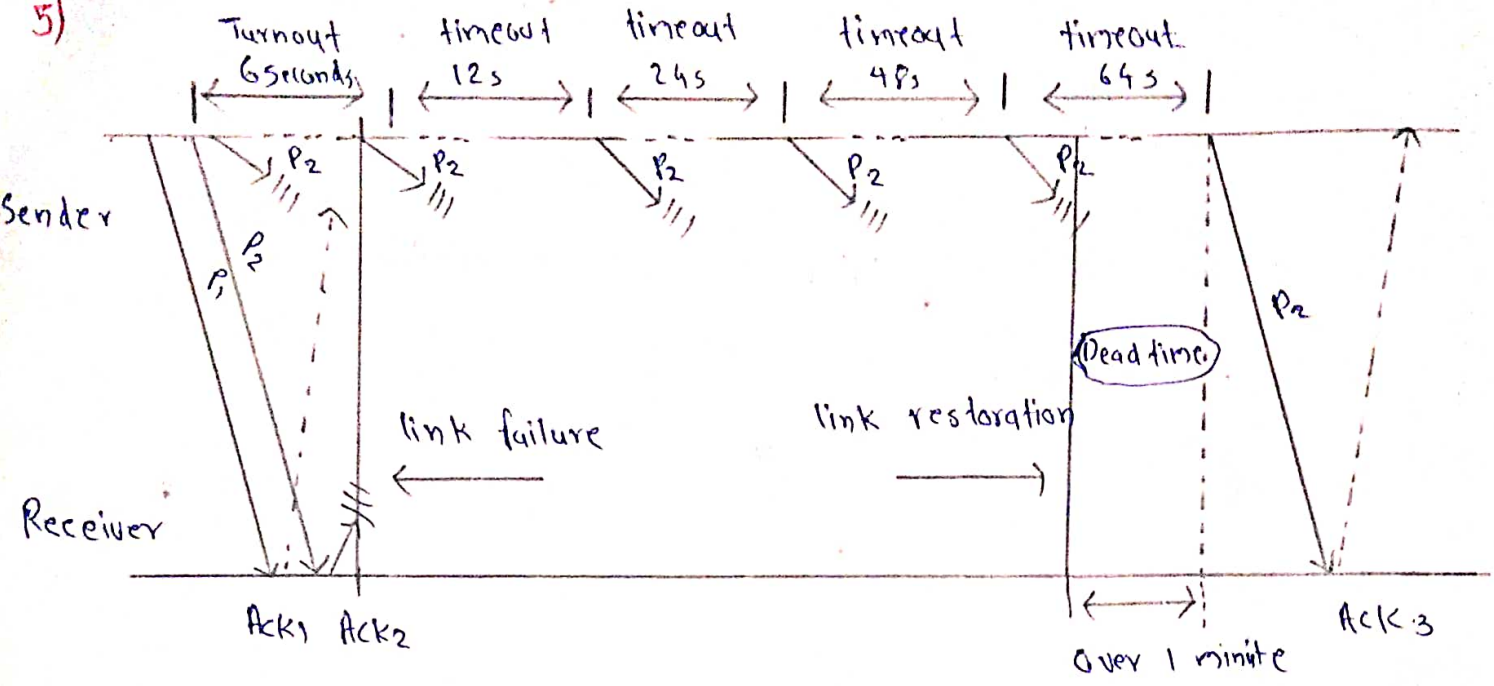 5)
Turnout
6 seconds
timeout
12s
timeout
24s
timeout
48s
timeout
64s
P2
P2
P2
P2
P2
Sender
P2
P1
P2
Dead time
link failure
link restoration
Receiver
Ack1 Ack2
Ack3
Over 1 minute